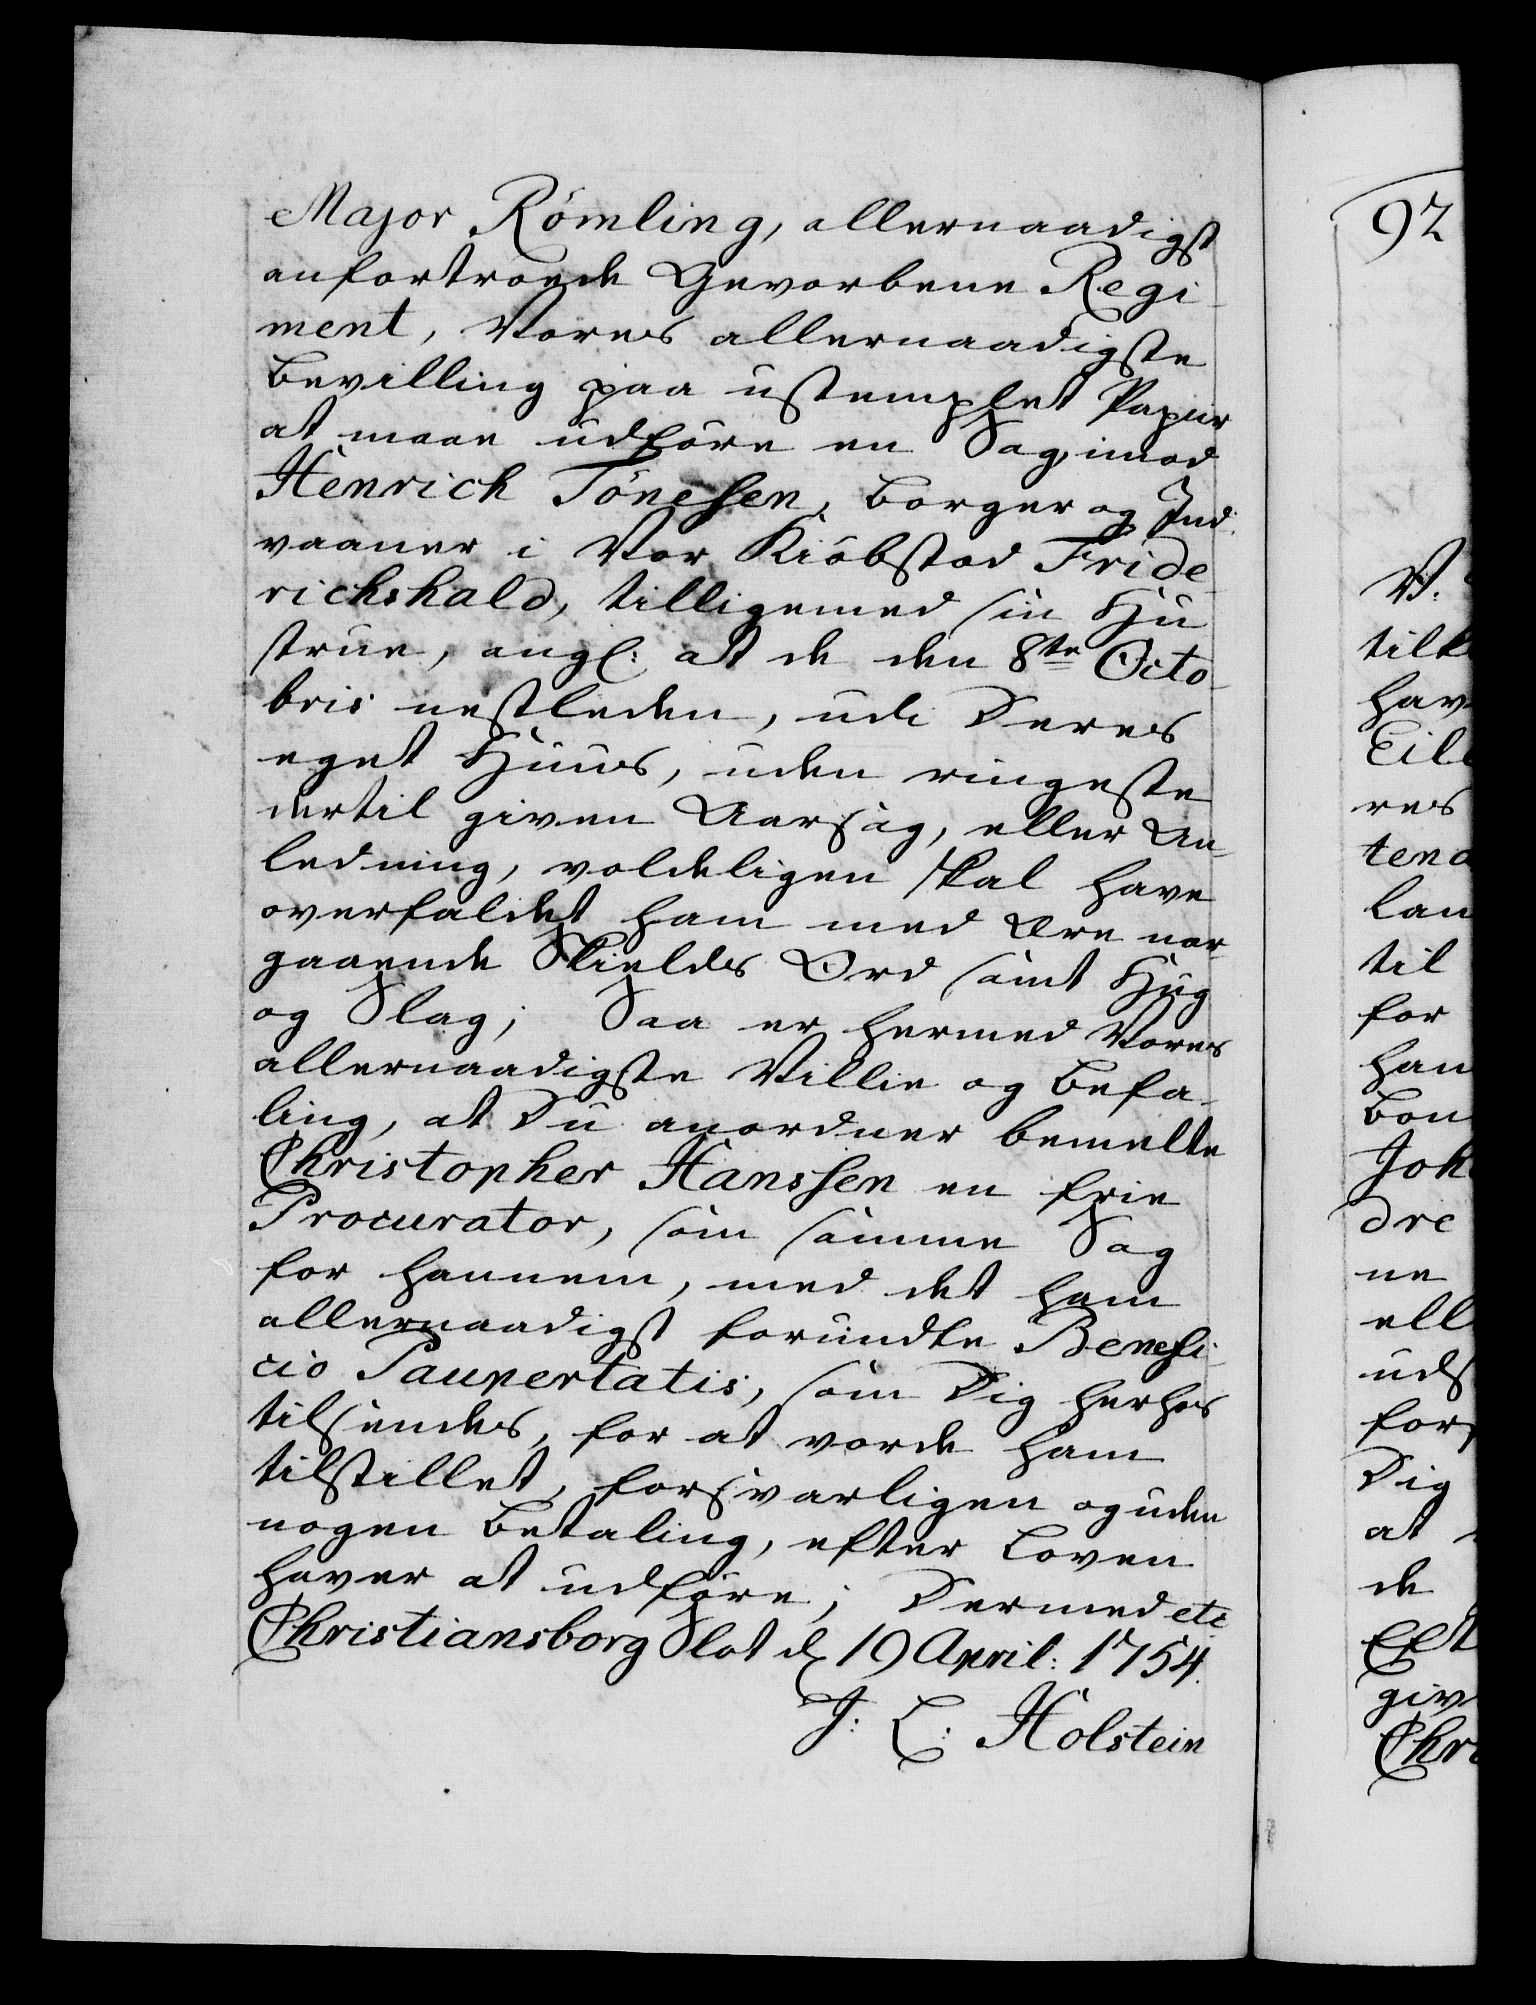 Major Römling, allernaadigst
anfortroede Gevorbene Regi-
ment, Vores allernaadigste
Bevilling paa ustemplet Papiir
at maae udføre en Sag, imod
Henrich Tönessen, Borger og Ind-
vaaner i Vor Kiöbstad Fride-
richshald, tilligemed sin Hu-
strue, angl: at de den 8te Octo-
bris nestleden, udi Deres
eget Huus, uden ringeste
dertil given Aarsag, eller An-
ledning, voldeligen skal have
overfaldet ham med Ære nær-
gaaende Skields Ord samt Hug
og Slag; Saa er hermed Vores
allernaadigste Villie og Befa-
ling, at Du anordner bemelte
Christopher Hanssen en frie
Procurator, som samme Sag
for hannem, med det ham
allernaadigst forundte Benefi-
cio Paupertatis, som Dig herhos
tilsendes, for at vorde ham
tilstillet, forsvarligen og uden
nogen Betaling, efter Loven
haver at udføre; Dermed etc.
Christiansborg Slot d 19 April: 1754.
J: L: Holstein
92
V.
tilk
hav
Eil
res
tend
lan
til
for
han
Bon
Joh
dre
ne
ell
uds
fors
Dig
at
de
Eft
giv
Chri